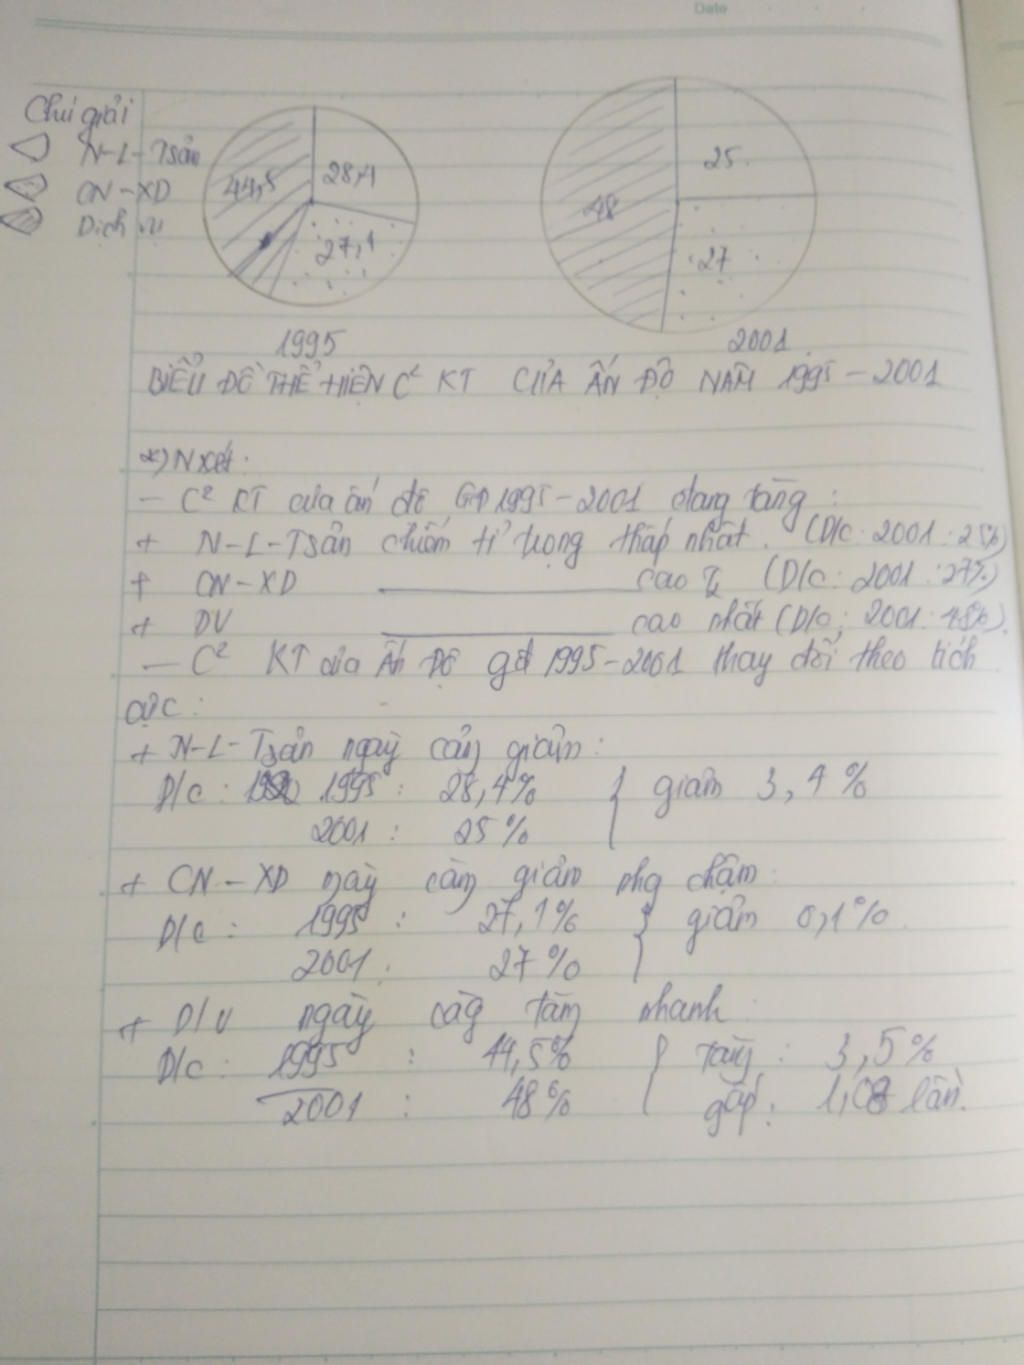 Date
Chú giải
N-L-Tsản
CN-XD
Dịch vụ
44,5
28,4
27,1
25
48
27
1995
2001
BIỂU ĐỒ THỂ HIỆN C² KT CỦA ẤN ĐỘ NĂM 1995-2001
*) N xét:
- C² KT của ấn độ GĐ 1995-2001 đang tăng:
+ N-L-Tsản chiếm tỉ trọng thấp nhất. (D/c: 2001: 25%)
+ CN-XD ______ cao (D/c: 2001: 27%)
+ DV ______ cao nhất (D/c: 2001: 48%).
- C² KT của Ấn Độ gđ 1995-2001 thay đổi theo tích
cực:
+ N-L-Tsản ngày càng giảm:
D/c: 1995: 28,4% } giảm 3,4%
2001: 25%
+ CN-XD ngày càng giảm nhg chậm:
D/c: 1995: 27,1% } giảm 0,1%
2001: 27%
+ D/V ngày càg tăng nhanh:
D/c: 1995: 44,5% } tăng: 3,5%
2001: 48% gấp: 1,08 lần.